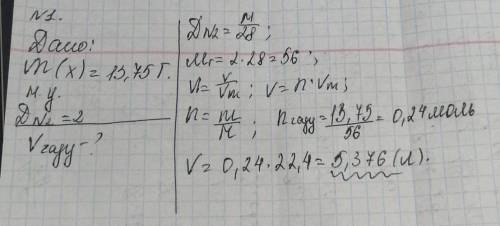 N1.
Дано:
m(x)=13,75г.
н.у.
D_{N2}=2
Vгазу-?
D_{N2}=M/28;
Mr=2·28=56;
n=V/Vm; V=n·Vm;
n=m/M; nгазу=13,75/56=0,24моль
V=0,24·22,4=5,376(л).